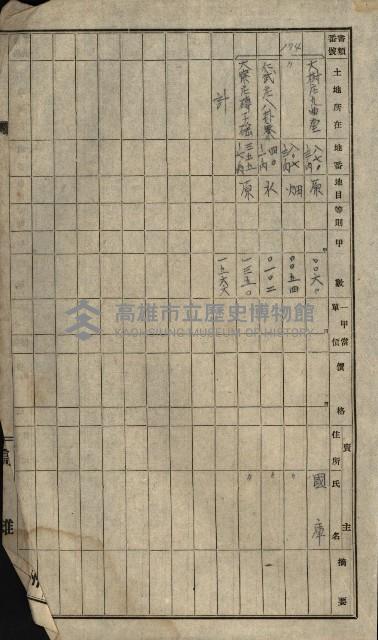 書類番號 土地所在 地番 地目 等則 甲數 一甲當單價 價格 賣主 住所 氏名 摘要
大樹庄九曲堂 八七〇 原 〇〇六〇 國庫
174 〃 八〇七 畑 〇〇五四 〃
仁武庄八卦寮 四〇 水 〇一〇二 〃
大寮庄 三五五 原 一三五〇 〃
計 一五六六
高雄市立歷史博物館
KAOHSIUNG MUSEUM OF HISTORY
雄